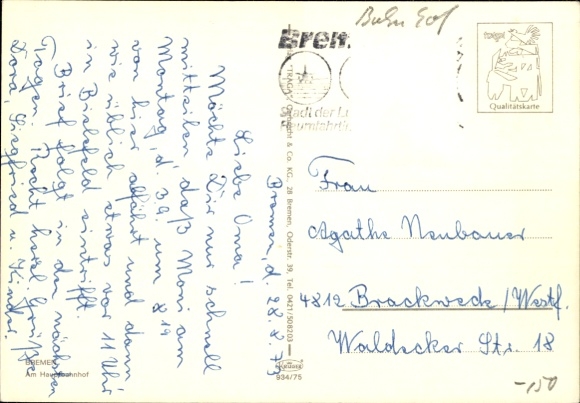 Bahnhof
Bremen
Stadt der Lu
Raumfahrt
Qualitätskarte
Bremen, d. 28.8.73
Liebe Oma!
Möchte Dir nur schnell
mitteilen daß Moni am
Montag, d. 3.9. um 8 19
von hier abfährt und dann
wie üblich etwas vor 11 Uhr
in Bielefeld eintrifft.
Brief folgt in den nächsten
Tagen. Recht herzl. Grüße
Dora, Siegfried u. Kinder.
Frau
Agathe Neubauer
4812 Brackwede/Westf.
Waldecker Str. 18
"TRAGA" & Co. KG., 28 Bremen, Oderstr. 39, Tel. 0421/508203
934/75
BREMEN
Am Hauptbahnhof
-150